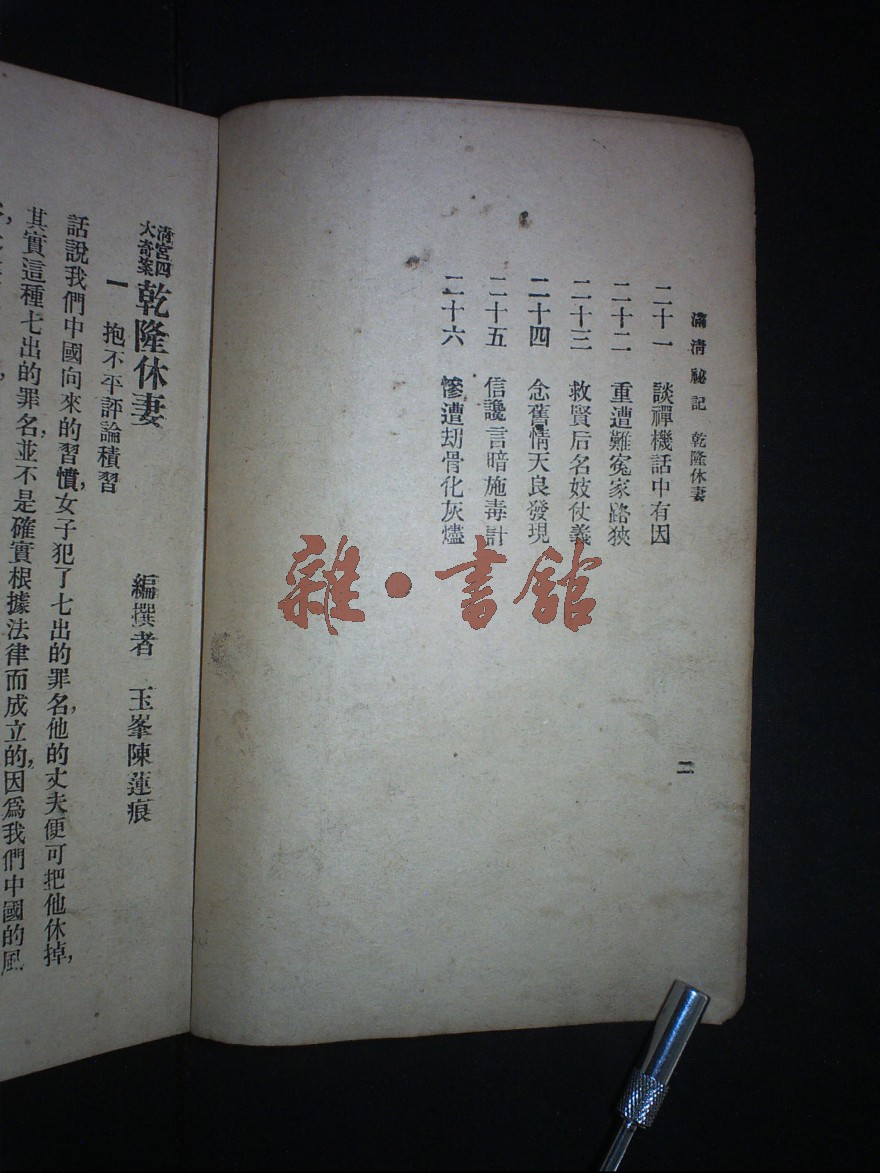 滿清祕記 乾隆休妻
二十一 談禪機話中有因
二十二 重遭難冤家路狹
二十三 救賢后名妓仗義
二十四 念舊情天良發現
二十五 信讒言暗施毒計
二十六 慘遭刧骨化灰燼
二
雜·書館
清宮四大奇案 乾隆休妻
編撰者 玉峯陳蓮痕
一 抱不平評論積習
話說我們中國向來的習慣,女子犯了七出的罪名,他的丈夫便可把他休掉,
其實這種七出的罪名,並不是確實根據法律而成立的,因爲我們中國的風